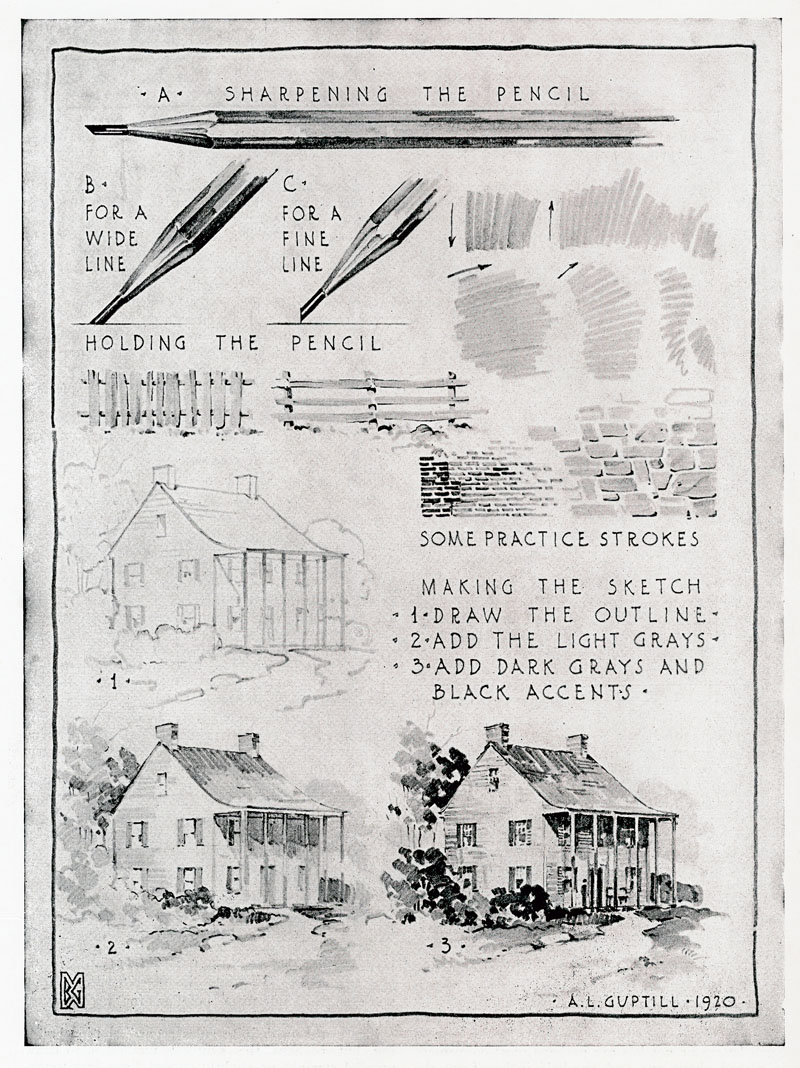 ·A· SHARPENING THE PENCIL
B·
FOR A
WIDE
LINE
C·
FOR A
FINE
LINE
HOLDING THE PENCIL
SOME PRACTICE STROKES
MAKING THE SKETCH
·1·DRAW THE OUTLINE·
·2·ADD THE LIGHT GRAYS·
·3·ADD DARK GRAYS AND
BLACK ACCENTS·
·1·
·2·
·3·
·A.L.GUPTILL·1920·